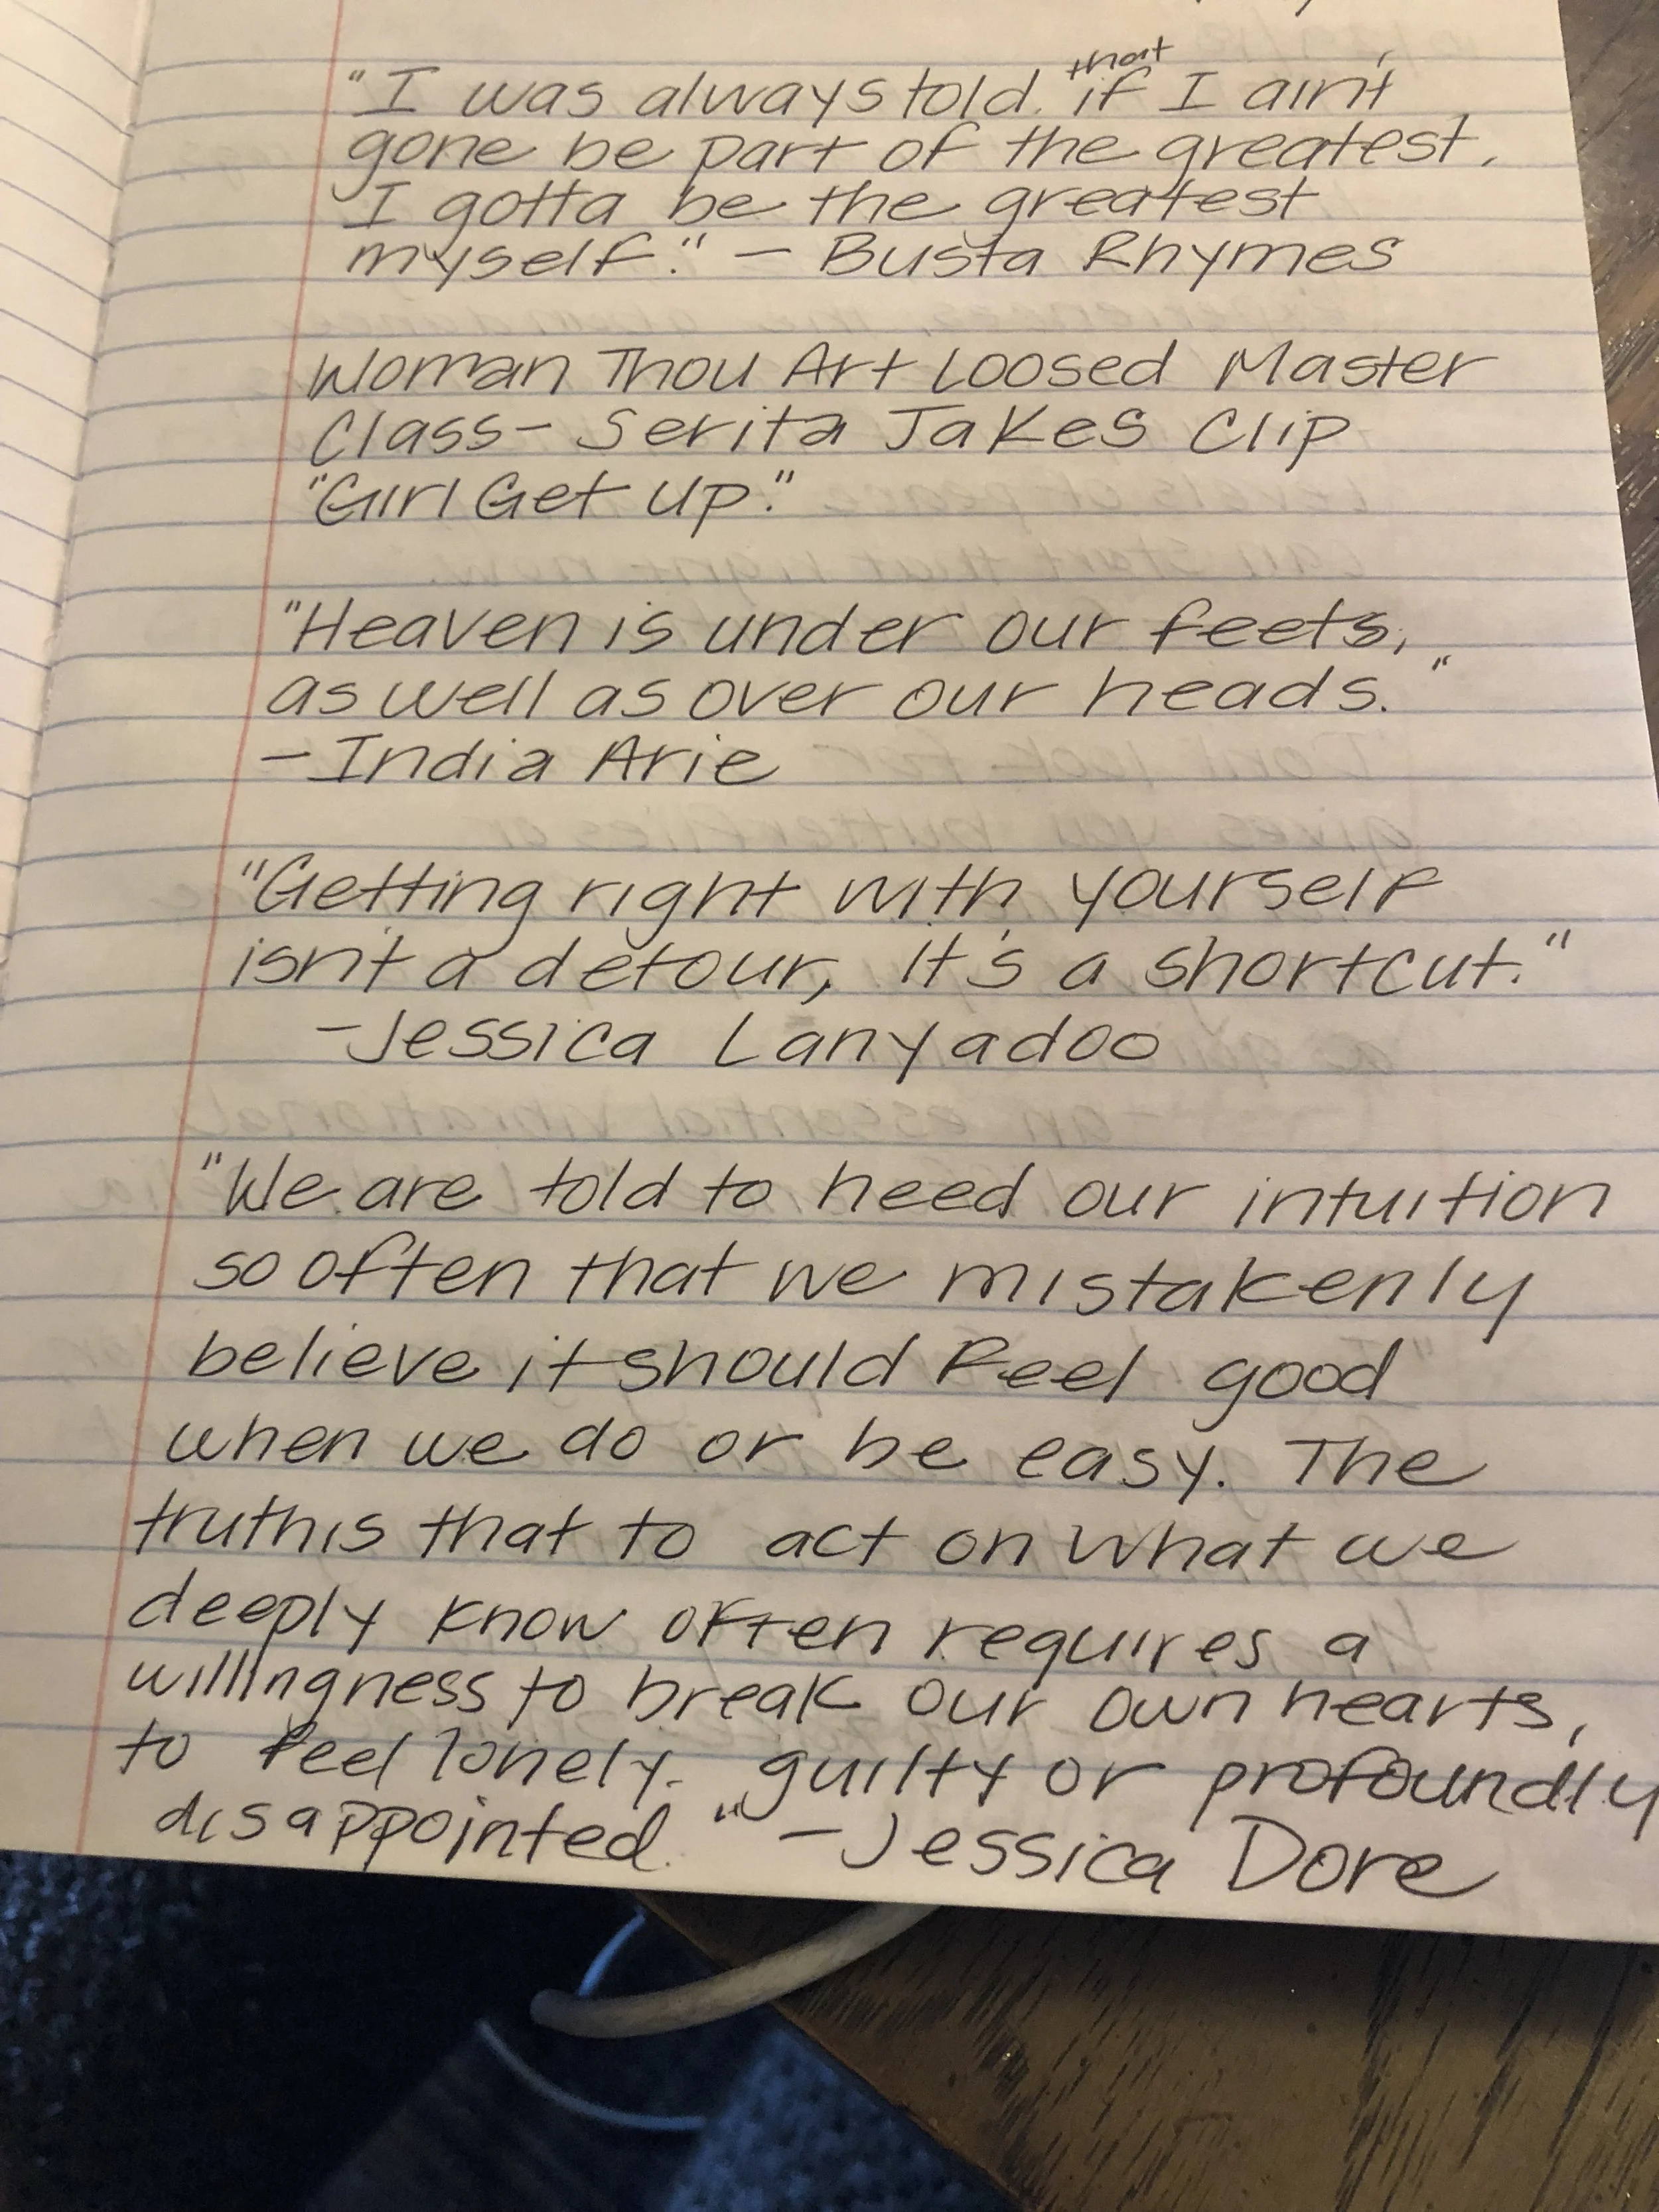 "I was always told that if I ain't
gone be part of the greatest,
I gotta be the greatest
myself." - Busta Rhymes
Woman Thou Art Loosed Master
Class- Serita Jakes Clip
"Girl Get Up."
"Heaven is under our feets,
as well as over our heads."
- India Arie
"Getting right with yourself
isn't a detour, it's a shortcut."
- Jessica Lanyadoo
"We are told to heed our intuition
so often that we mistakenly
believe it should feel good
when we do or be easy. The
truth is that to act on what we
deeply know often requires a
willingness to break our own hearts,
to feel lonely, guilty or profoundly
disappointed." - Jessica Dore